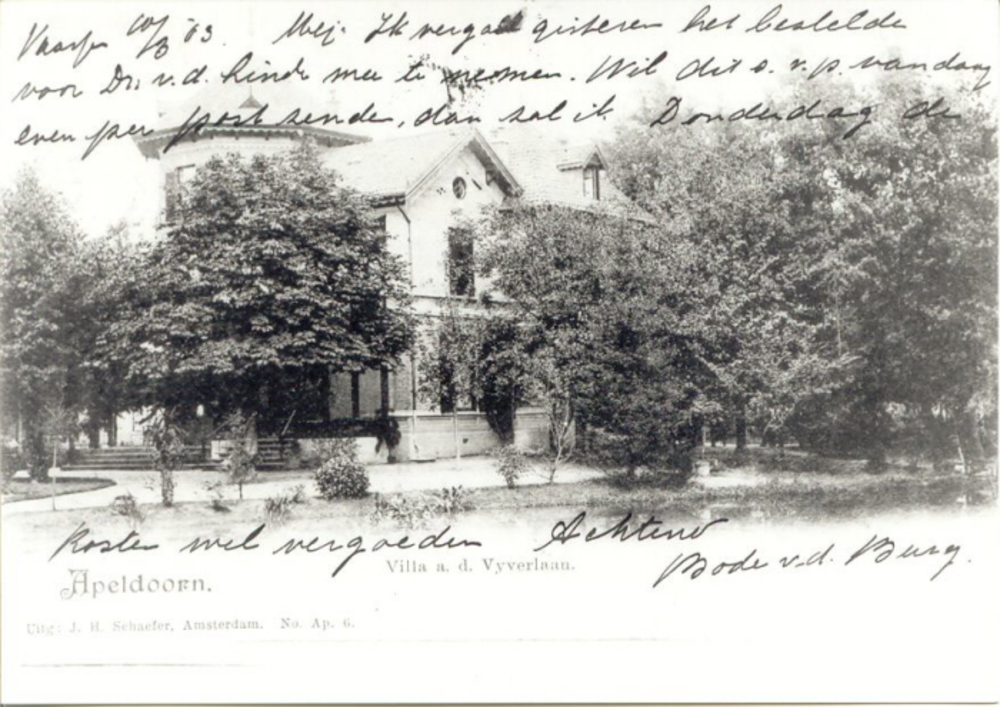 Vaassen 10/8 '03. Mej. Ik vergat gisteren het bestelde
voor Dr. v.d. Hinde mee te nemen. Wil dit s.v.p. vandaag
even per post senden, dan sal ik Donderdag de
Kosten wel vergoeden Achtend
Bode v.d. Burg.
Villa a. d. Vyverlaan.
Apeldoorn.
Uitg: J. H. Schaefer, Amsterdam. No. Ap. 6.